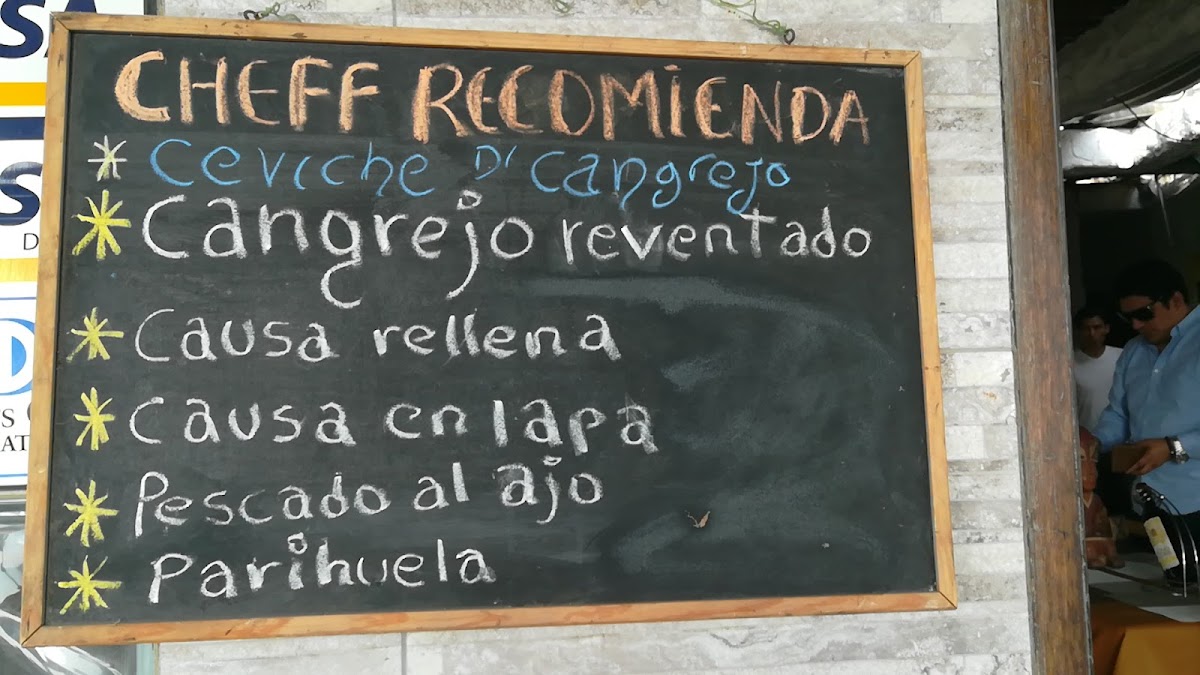 CHEFF RECOMIENDA
* Ceviche D' Cangrejo
* Cangrejo reventado
* Causa rellena
* Causa en lapa
* Pescado al ajo
* Parihuela